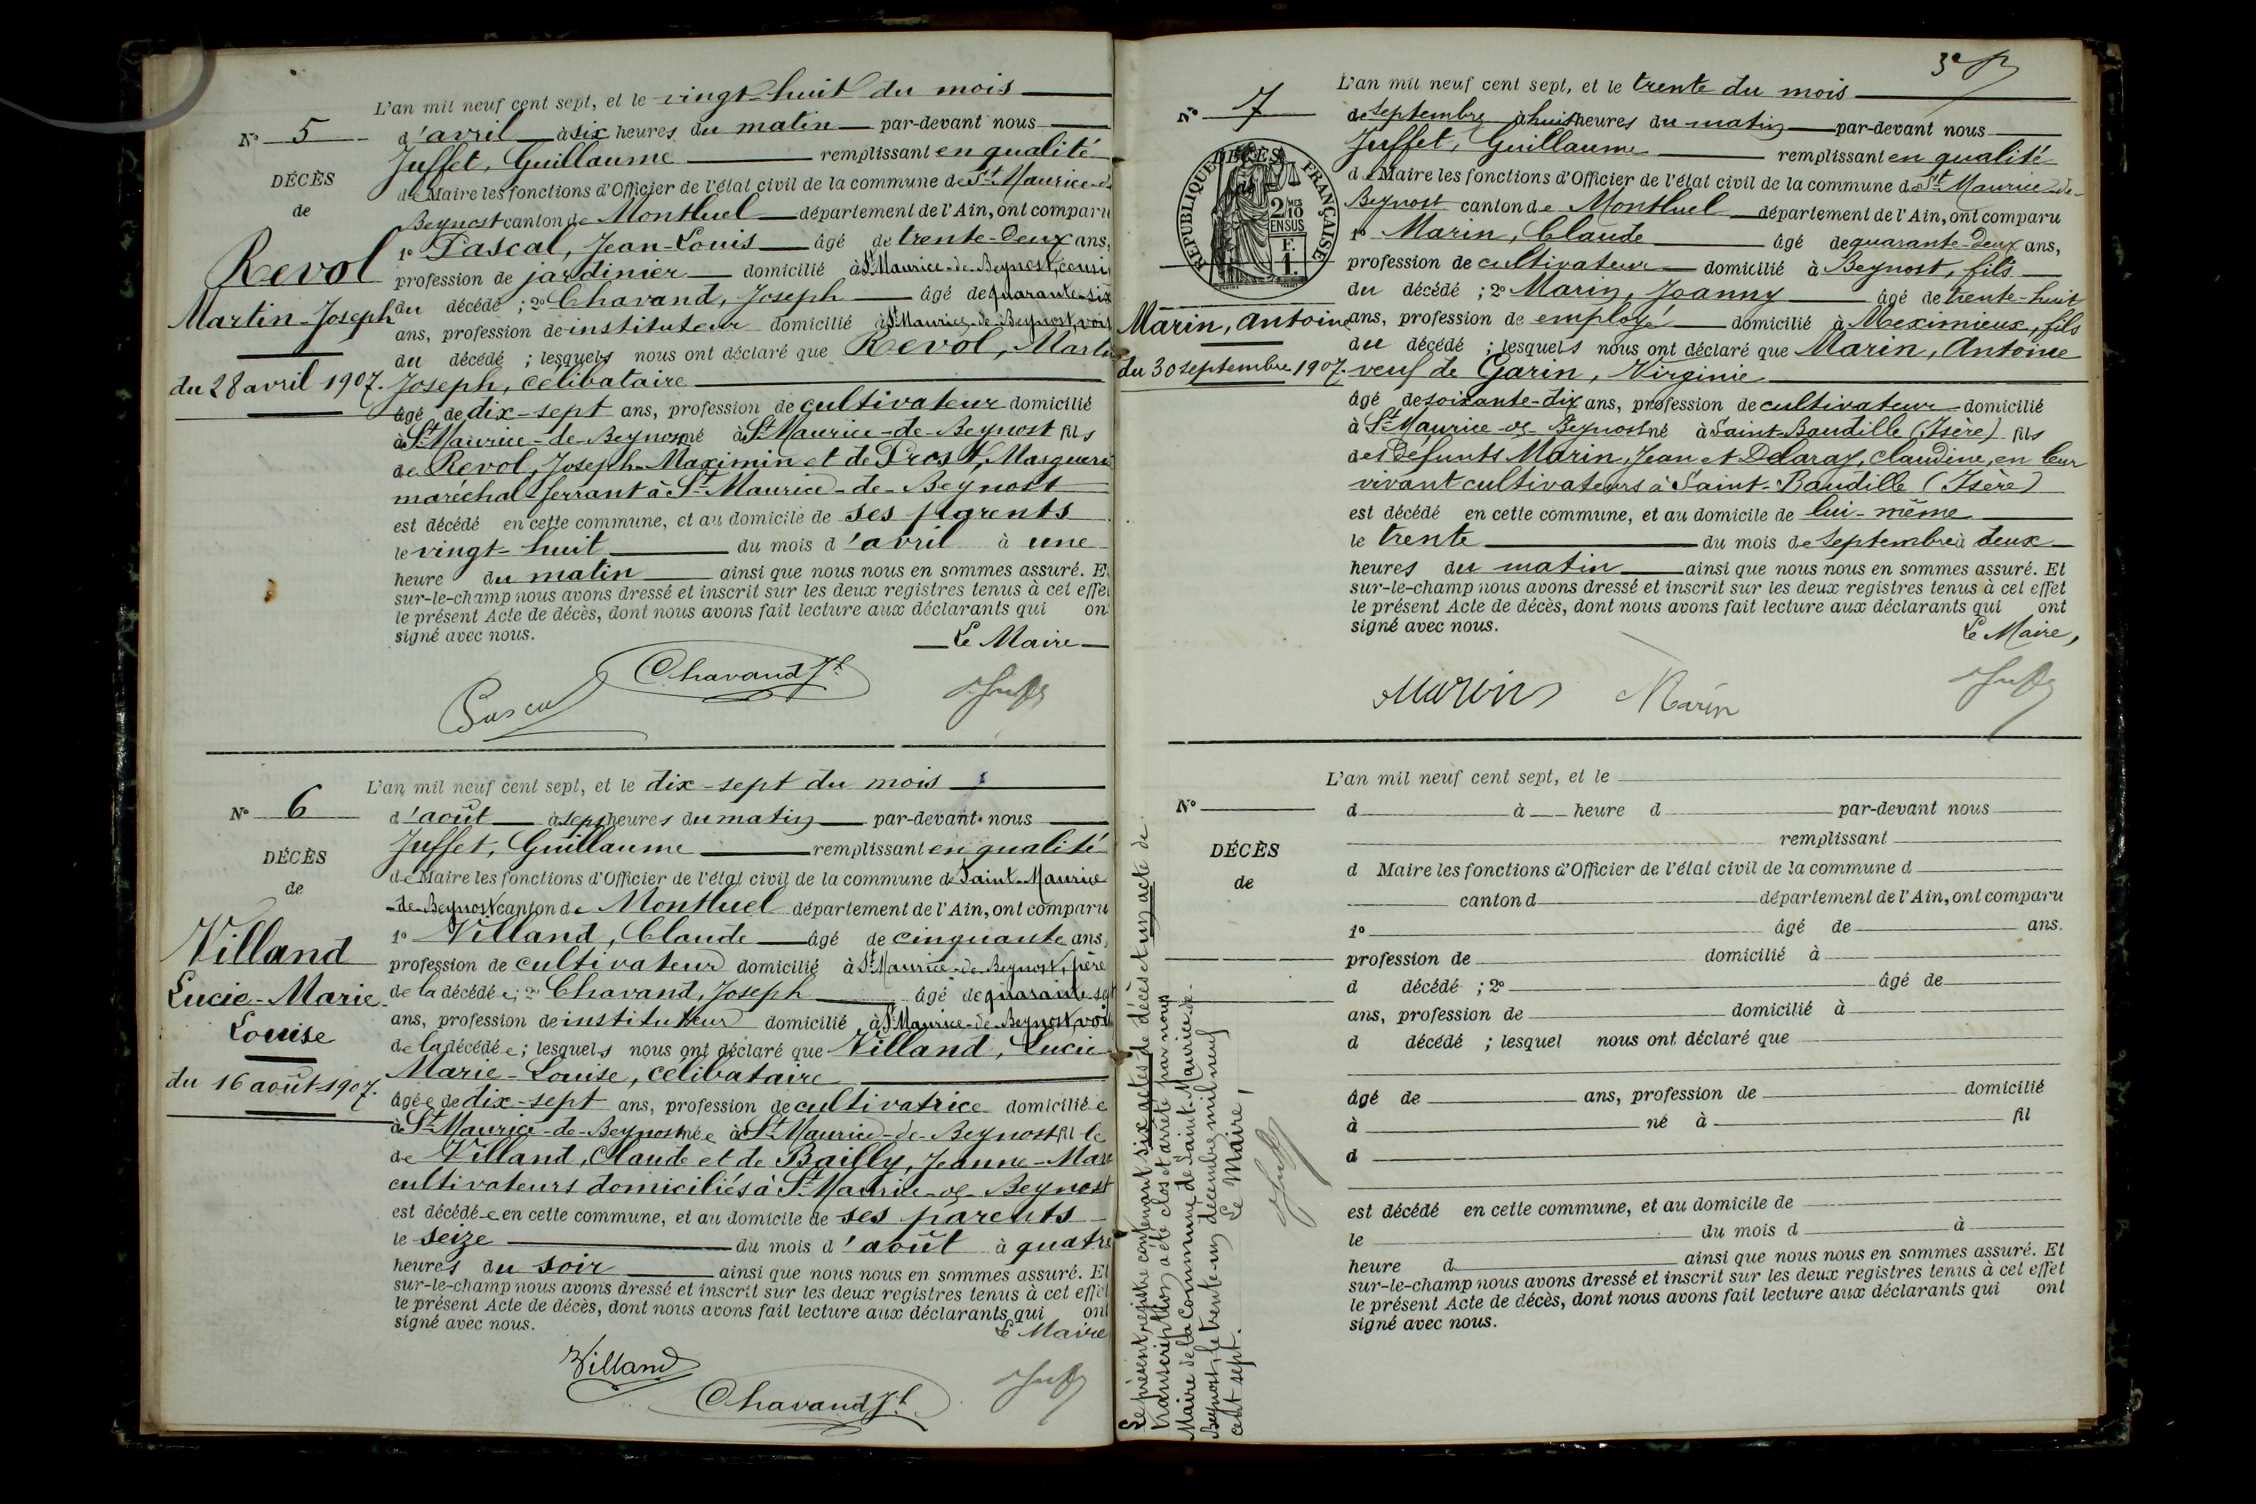 L'an mil neuf cent sept, et le vingt-huit du mois
N° 5
d'avril à six heures du matin par-devant nous
Juffet, Guillaume remplissant en qualité
DÉCÈS
de Maire les fonctions d'Officier de l'état civil de la commune de St Maurice-de
de
Beynost canton de Montluel département de l'Ain, ont comparu
1° Pascal, Jean-Louis âgé de trente-deux ans,
Revol
profession de jardinier domicilié à St Maurice-de-Beynost, cousin
Martin-Joseph
du décédé ; 2° Chavand, Joseph âgé de quarante-six
ans, profession de instituteur domicilié à St Maurice-de-Beynost, vois
du décédé ; lesquels nous ont déclaré que Revol, Martin
du 28 avril 1907.
Joseph, célibataire
âgé de dix-sept ans, profession de cultivateur domicilié
à St Maurice-de-Beynost né à St Maurice-de-Beynost fils
de Revol, Joseph-Maximin et de Prost, Marguerite
maréchal-ferrant à St Maurice-de-Beynost
est décédé en cette commune, et au domicile de ses parents
le vingt-huit du mois d'avril à une
heure du matin ainsi que nous nous en sommes assuré. Et
sur-le-champ nous avons dressé et inscrit sur les deux registres tenus à cet effet
le présent Acte de décès, dont nous avons fait lecture aux déclarants qui ont
signé avec nous.
Le Maire
Pascal
Chavand Jh
Juffet
L'an mil neuf cent sept, et le dix-sept du mois
N° 6
d'août à sept heures du matin par-devant nous
Juffet, Guillaume remplissant en qualité
DÉCÈS
de Maire les fonctions d'Officier de l'état civil de la commune de Saint-Maurice
de
-de-Beynost canton de Montluel département de l'Ain, ont comparu
1° Villand, Claude âgé de cinquante ans,
Villand
profession de cultivateur domicilié à St Maurice-de-Beynost, père
Lucie-Marie-
de la décédée ; 2° Chavand, Joseph âgé de quarante-sept
Louise
ans, profession de instituteur domicilié à St Maurice-de-Beynost, vois
de la décédée ; lesquels nous ont déclaré que Villand, Lucie
du 16 août 1907.
Marie-Louise, célibataire
âgée de dix-sept ans, profession de cultivatrice domiciliée
à St Maurice-de-Beynost née à St Maurice-de-Beynost fille
de Villand, Claude et de Bailly, Jeanne-Marie
cultivateurs domiciliés à St Maurice-de-Beynost
est décédée en cette commune, et au domicile de ses parents
le seize du mois d'août à quatre
heures du soir ainsi que nous nous en sommes assuré. Et
sur-le-champ nous avons dressé et inscrit sur les deux registres tenus à cet effet
le présent Acte de décès, dont nous avons fait lecture aux déclarants qui ont
signé avec nous.
Le Maire
Villand
Chavand Jh
Juffet
3e
L'an mil neuf cent sept, et le trente du mois
N° 7
de septembre à huit heures du matin par-devant nous
Juffet, Guillaume remplissant en qualité
DÉCÈS
de
RÉPUBLIQUE FRANÇAISE
2 MES 10
EN SUS
F.
1.
de Maire les fonctions d'Officier de l'état civil de la commune de St Maurice-de-
Beynost canton de Montluel département de l'Ain, ont comparu
1° Marin, Claude âgé de quarante-deux ans,
profession de cultivateur domicilié à Beynost, fils
du décédé ; 2° Marin, Joanny âgé de trente-huit
Marin, Antoine
ans, profession de employé domicilié à Meximieux, fils
du décédé ; lesquels nous ont déclaré que Marin, Antoine
du 30 septembre 1907.
veuf de Garin, Virginie
âgé de soixante-dix ans, profession de cultivateur domicilié
à St Maurice-de-Beynost né à Saint-Baudille (Isère) fils
des défunts Marin, Jean et Delaray, Claudine, en leur
vivant cultivateurs à Saint-Baudille (Isère)
est décédé en cette commune, et au domicile de lui-même
le trente du mois de septembre à deux
heures du matin ainsi que nous nous en sommes assuré. Et
sur-le-champ nous avons dressé et inscrit sur les deux registres tenus à cet effet
le présent Acte de décès, dont nous avons fait lecture aux déclarants qui ont
signé avec nous.
Le Maire,
Marin
Marin
Juffet
Le présent registre contenant six actes de décès et un acte de
transcription a été clos et arrêté par nous
Maire de la Commune de Saint-Maurice-de-
Beynost, le trente-un décembre mil neuf
cent sept. Le Maire,
Juffet
L'an mil neuf cent sept, et le
N°
d à heure d par-devant nous
remplissant
DÉCÈS
d Maire les fonctions d'Officier de l'état civil de la commune d
de
canton d département de l'Ain, ont comparu
1° âgé de ans.
profession de domicilié à
d décédé ; 2° âgé de
ans, profession de domicilié à
d décédé ; lesquel nous ont déclaré que
âgé de ans, profession de domicilié
à né à fil
d
est décédé en cette commune, et au domicile de
le du mois d à
heure d ainsi que nous nous en sommes assuré. Et
sur-le-champ nous avons dressé et inscrit sur les deux registres tenus à cet effet
le présent Acte de décès, dont nous avons fait lecture aux déclarants qui ont
signé avec nous.